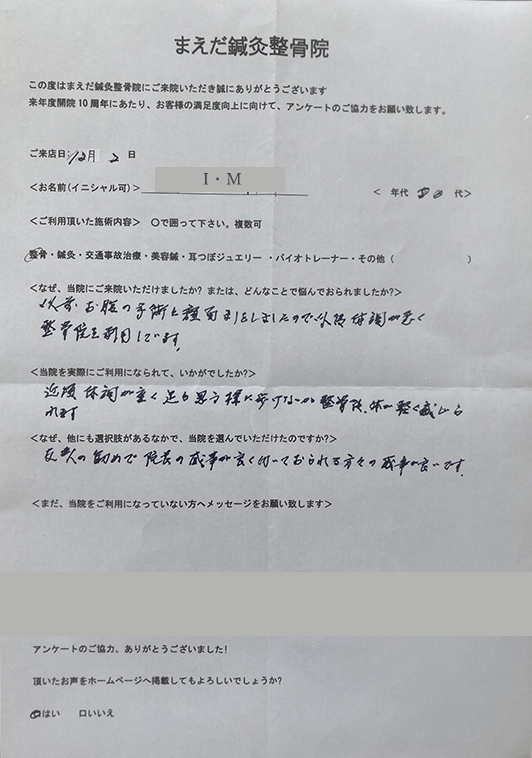 まえだ鍼灸整骨院
この度はまえだ鍼灸整骨院にご来院いただき誠にありがとうございます
来年度開院10周年にあたり、お客様の満足度向上に向けて、アンケートのご協力をお願い致します。
ご来店日:12月 2 日
<お名前(イニシャル可)> I・M <年代 80 代>
<ご利用頂いた施術内容> ○で囲って下さい。複数可
整骨・鍼灸・交通事故治療・美容鍼・耳つぼジュエリー ・バイオトレーナー・その他( )
<なぜ、当院にご来院いただけましたか? または、どんなことで悩んでおられましたか?>
以前 お腹の手術と をしましたので以後 体調が悪く
整骨院を利用しています。
<当院を実際にご利用になられて、いかがでしたか?>
体調が 足も思う様に歩けないが 整骨院、体が軽く感じら
れます
<なぜ、他にも選択肢があるなかで、当院を選んでいただけたのですか?>
友人の勧めで 院長の感事が良く付いておられる方々の感事が良いです。
<まだ、当院をご利用になっていない方へメッセージをお願い致します>
アンケートのご協力、ありがとうございました!
頂いたお声をホームページへ掲載してもよろしいでしょうか?
口はい 口いいえ